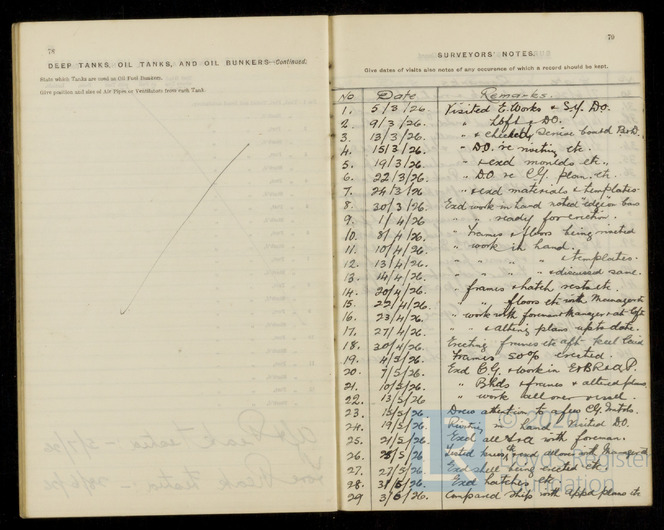 76
DEEP TANKS, OIL TANKS, AND OIL BUNKERS—Continued.
State which Tanks are used as Oil Fuel Bunkers.
Give position and size of Air Pipes or Ventilators from each Tank.
79
SURVEYORS' NOTES.
Give dates of visits also notes of any occurence of which a record should be kept.
No Date Remarks.
1. 5/3/26. Visited E. Works & S.Y. DO.
2. 9/3/26. " Loft & DO.
3. 13/3/26. "
4. 15/3/26. " D.O. re riveting etc.
5. 19/3/26. " & exd moulds etc.,
6. 22/3/26. " D.O. re C.G. plan, etc.
7. 24/3/26 " & exd materials & templates
8. 30/3/26. Exd work in hand noted "edge" on bars
9. 1/4/26. " " ready for erection.
10. 8/4/26. " frames & floors being riveted
11. 10/4/26. " work in hand.
12. 13/4/26. " " " " & templates.
13. 14/4/26. " " " " & discussed same.
14. 20/4/26. " frames & hatch
15. 22/4/26. " " floors etc with Manager
16. 23/4/26. " work with foreman & manager
17. 27/4/26. " " & altering plans up to date.
18. 30/4/26. Erecting frames etc aft. keel laid
19. 4/5/26. Frames 50% erected.
20. 7/5/26. Exd C.G. & work in
21. 10/5/26. " Bhds & frames & altered plans,
22. 13/5/26 " work all over vessel.
23. 15/5/26 Drew attention to a few C.G.
24. 19/5/26. Riveting in hand. Visited DO.
25. 21/5/26. Exd all with foreman.
26. Tested
27. 27/5/26. Exd shell being erected etc.
28. 31/5/26. Exd hatches etc.
29 3/6/26. Compared ship with appd plans etc
© 2020
Lloyd's Register
Foundation